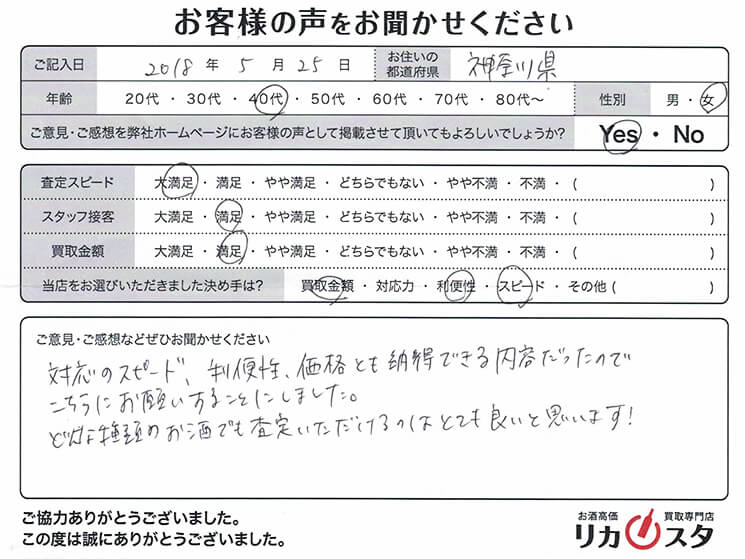 お客様の声をお聞かせください
ご記入日 2018 年 5 月 25 日 お住いの都道府県 神奈川県
年齢 20代 ・ 30代 ・ 40代 ・ 50代 ・ 60代 ・ 70代 ・ 80代〜 性別 男 ・ 女
ご意見・ご感想を弊社ホームページにお客様の声として掲載させて頂いてもよろしいでしょうか? Yes ・ No
査定スピード 大満足 ・ 満足 ・ やや満足 ・ どちらでもない ・ やや不満 ・ 不満 ・ ( )
スタッフ接客 大満足 ・ 満足 ・ やや満足 ・ どちらでもない ・ やや不満 ・ 不満 ・ ( )
買取金額 大満足 ・ 満足 ・ やや満足 ・ どちらでもない ・ やや不満 ・ 不満 ・ ( )
当店をお選びいただきました決め手は? 買取金額 ・ 対応力 ・ 利便性 ・ スピード ・ その他 ( )
ご意見・ご感想などぜひお聞かせください
対応のスピード、利便性、価格とも納得できる内容だったので
こちらにお願いすることにしました。
どんな種類のお酒でも査定いただけるのはとても良いと思います!
ご協力ありがとうございました。
この度は誠にありがとうございました。
お酒高価 買取専門店
リカスタ